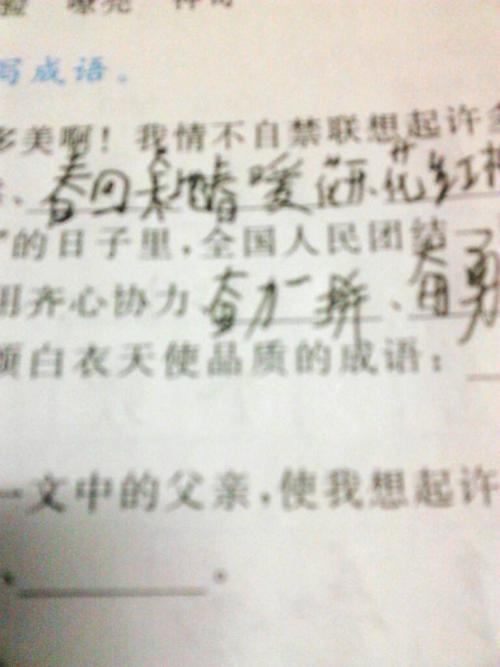 写成语。
多美啊！我情不自禁联想起许多
、春回大地春暖花开、花红柳
"的日子里，全国人民团结一
用齐心协力、奋力一拼、奋勇
颂白衣天使品质的成语：
一文中的父亲，使我想起许
、。